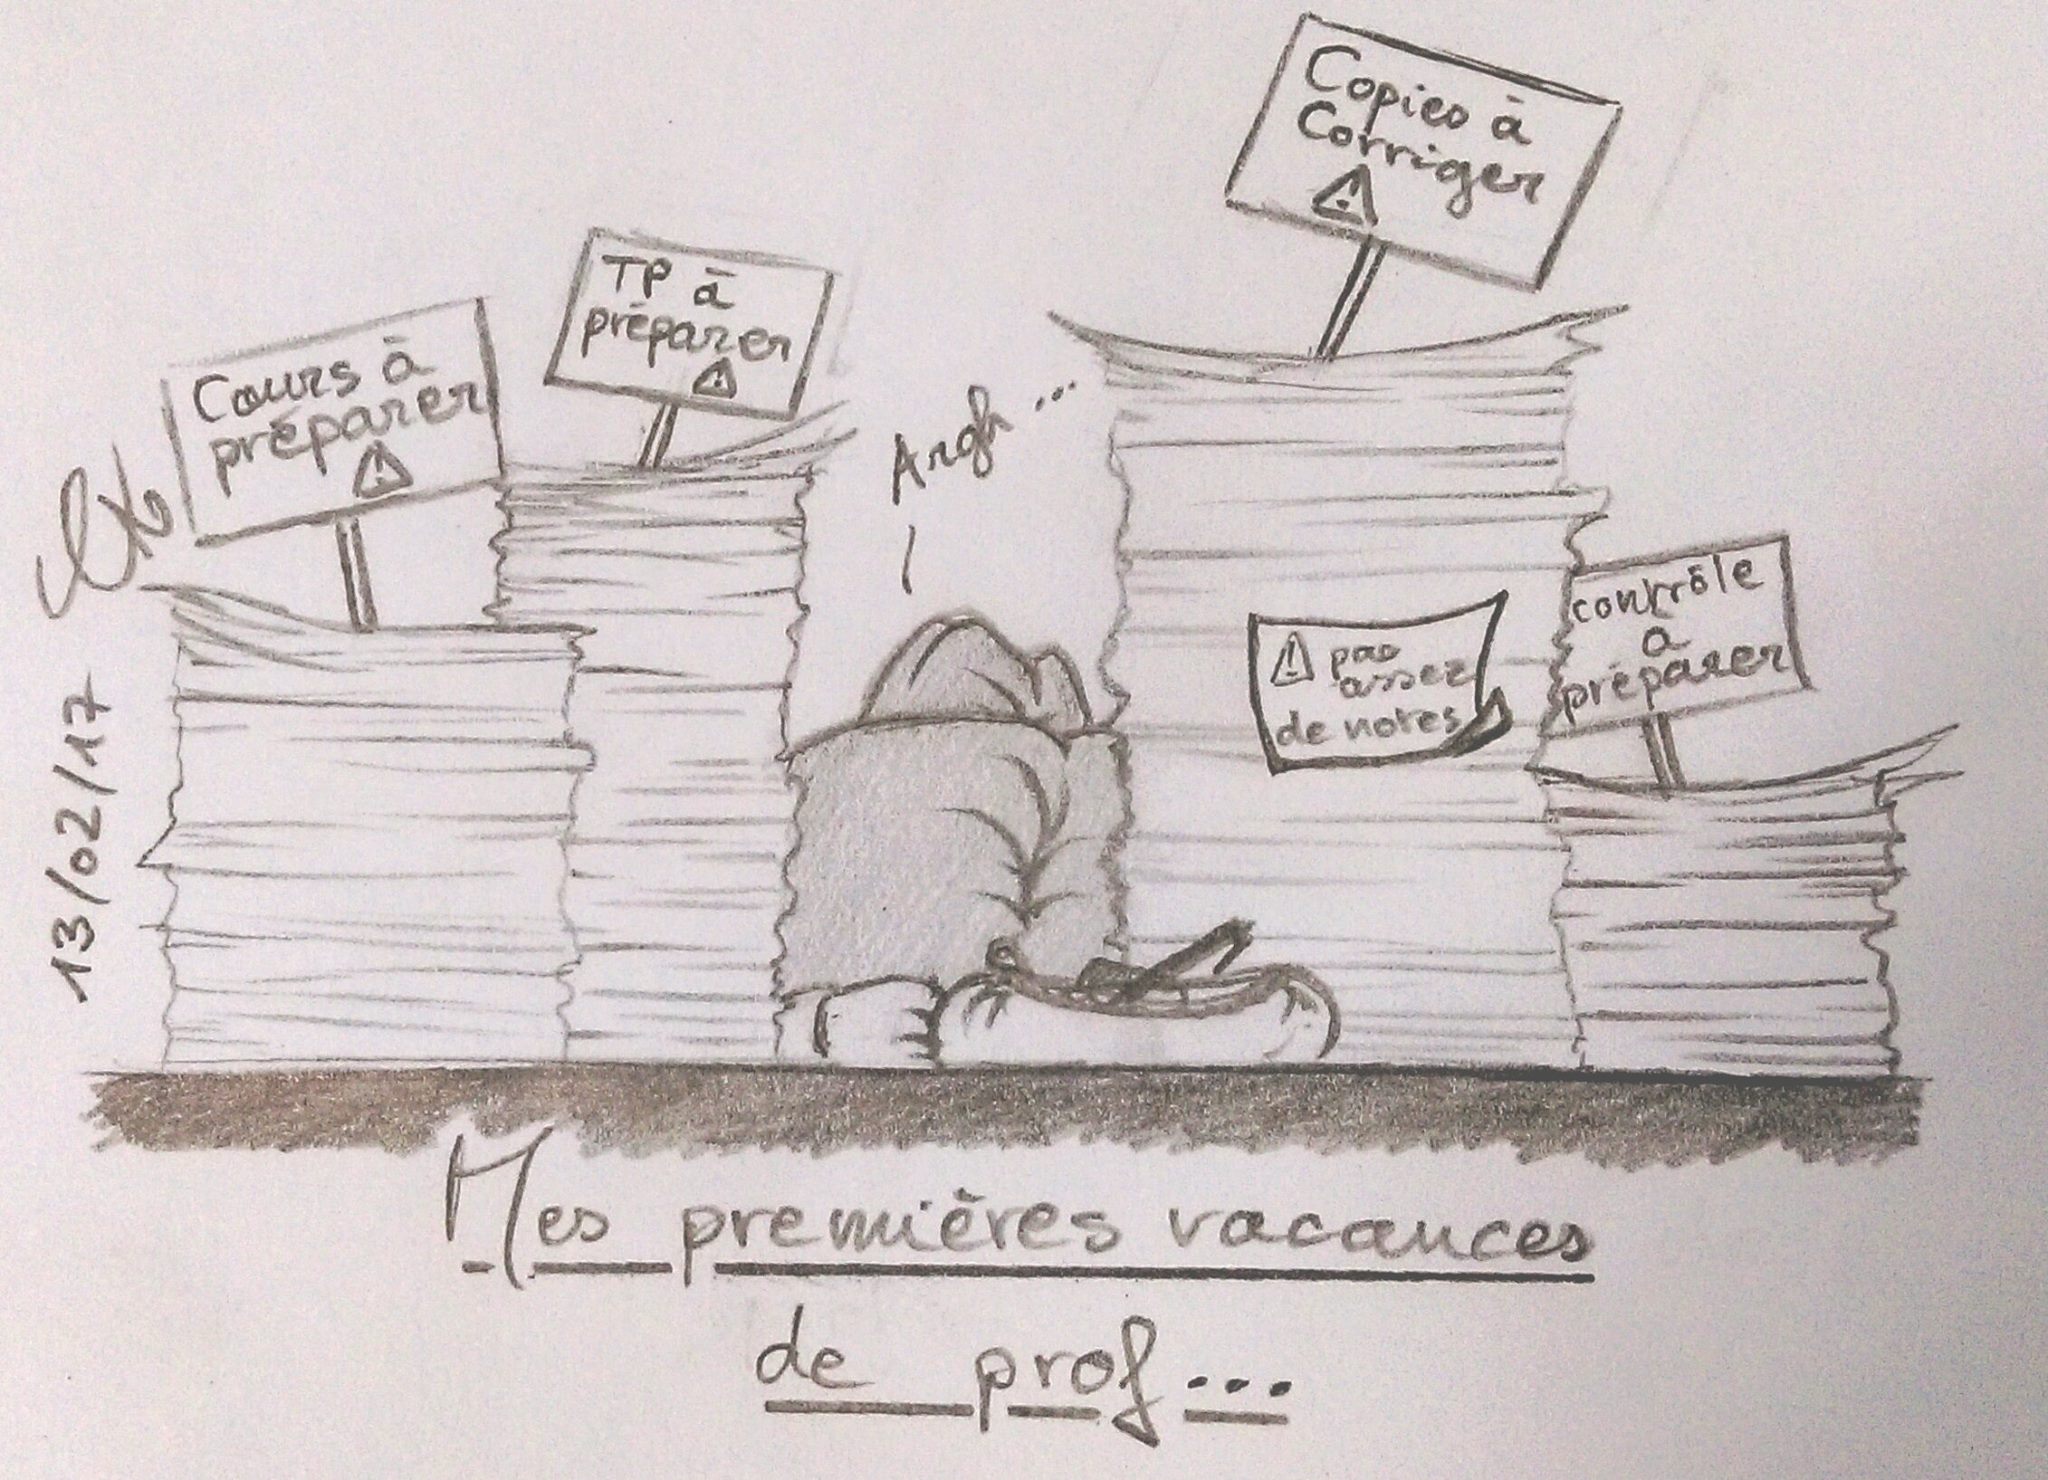 Copies à
Corriger
TP à
préparer
Cours à
préparer
Argh...
contrôle
a
préparer
pas
assez
de notes
13/02/17
Mes premières vacances
de prof...